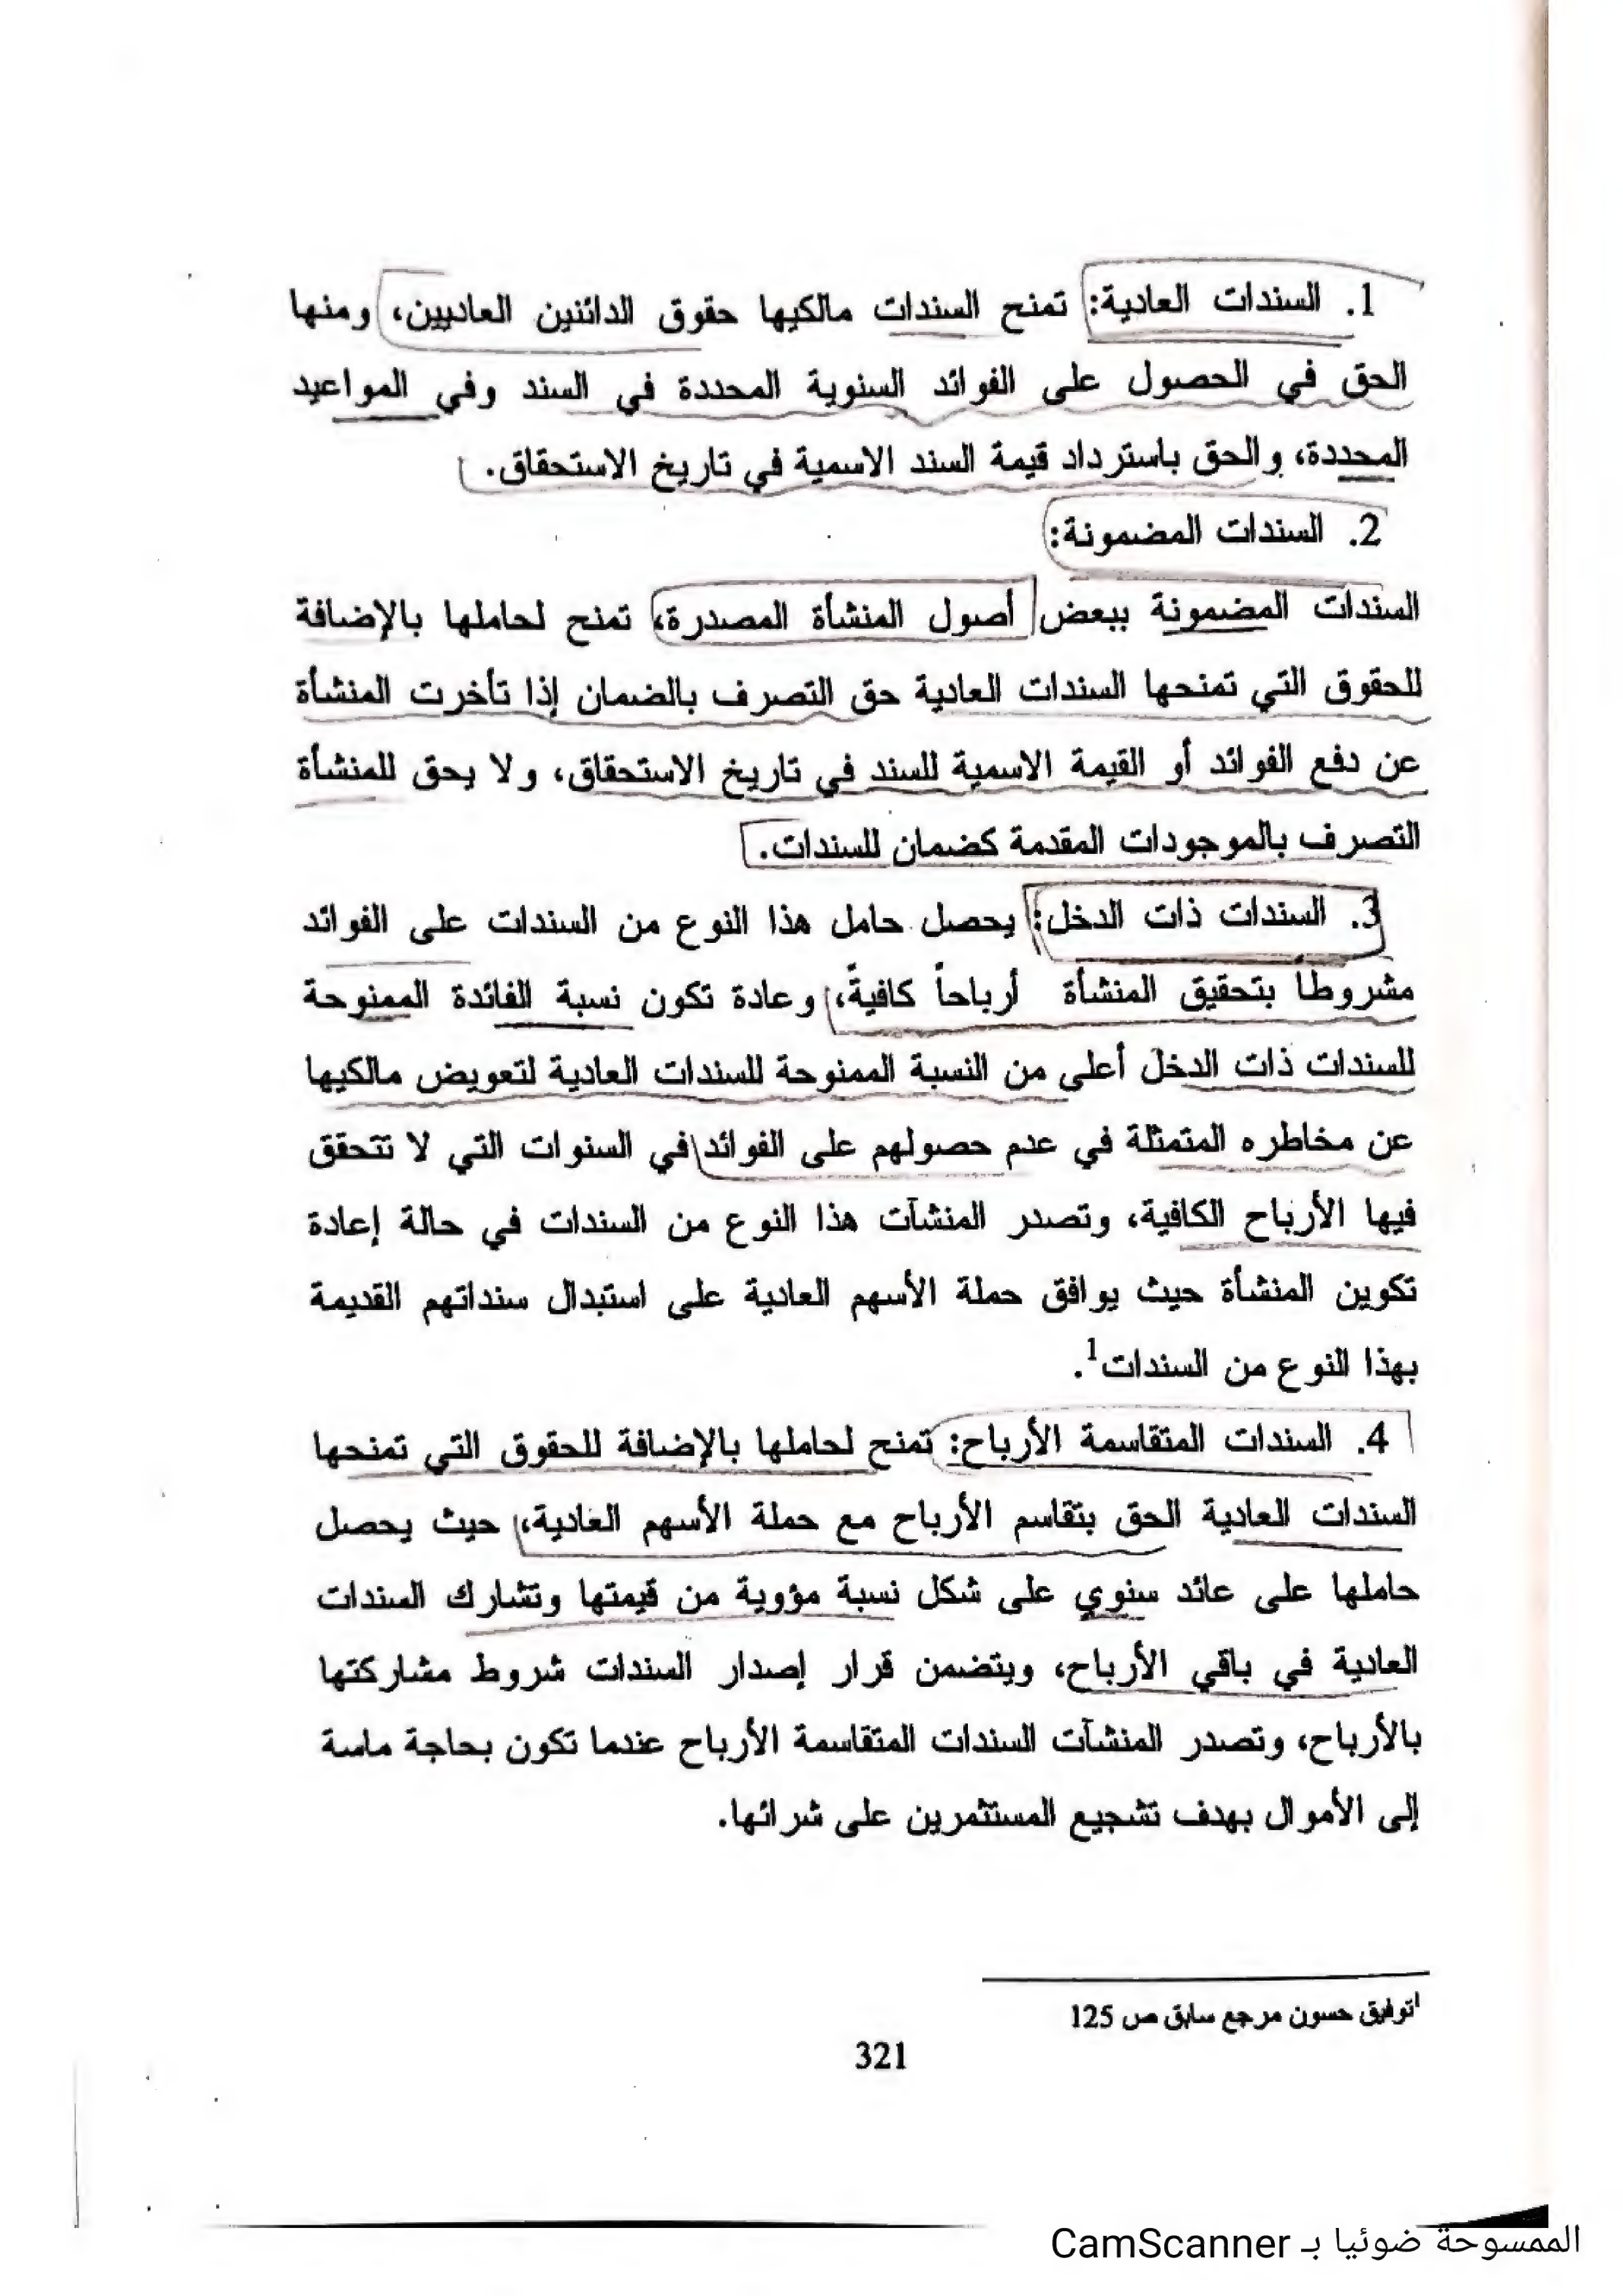 1. السندات العادية: تمنح السندات مالكيها حقوق الدائنين العاديين، ومنها
الحق في الحصول على الفوائد السنوية المحددة في السند وفي المواعيد
المحددة، والحق باسترداد قيمة السند الاسمية في تاريخ الاستحقاق.
2. السندات المضمونة:
السندات المضمونة ببعض أصول المنشأة المصدرة، تمنح لحاملها بالإضافة
للحقوق التي تمنحها السندات العادية حق التصرف بالضمان إذا تأخرت المنشأة
عن دفع الفوائد أو القيمة الاسمية للسند في تاريخ الاستحقاق، ولا يحق للمنشأة
التصرف بالموجودات المقدمة كضمان للسندات.
3. السندات ذات الدخل: يحصل حامل هذا النوع من السندات على الفوائد
مشروطاً بتحقيق المنشأة أرباحاً كافيةً، وعادة تكون نسبة الفائدة الممنوحة
للسندات ذات الدخل أعلى من النسبة الممنوحة للسندات العادية لتعويض مالكيها
عن مخاطره المتمثلة في عدم حصولهم على الفوائد في السنوات التي لا تتحقق
فيها الأرباح الكافية، وتصدر المنشآت هذا النوع من السندات في حالة إعادة
تكوين المنشأة حيث يوافق حملة الأسهم العادية على استبدال سنداتهم القديمة
بهذا النوع من السندات¹.
4. السندات المتقاسمة الأرباح: تمنح لحاملها بالإضافة للحقوق التي تمنحها
السندات العادية الحق بتقاسم الأرباح مع حملة الأسهم العادية، حيث يحصل
حاملها على عائد سنوي على شكل نسبة مؤوية من قيمتها وتشارك السندات
العادية في باقي الأرباح، ويتضمن قرار إصدار السندات شروط مشاركتها
بالأرباح، وتصدر المنشآت السندات المتقاسمة الأرباح عندما تكون بحاجة ماسة
إلى الأموال بهدف تشجيع المستثمرين على شرائها.
¹توفيق حسون مرجع سابق ص 125
321
الممسوحة ضوئيا بـ CamScanner